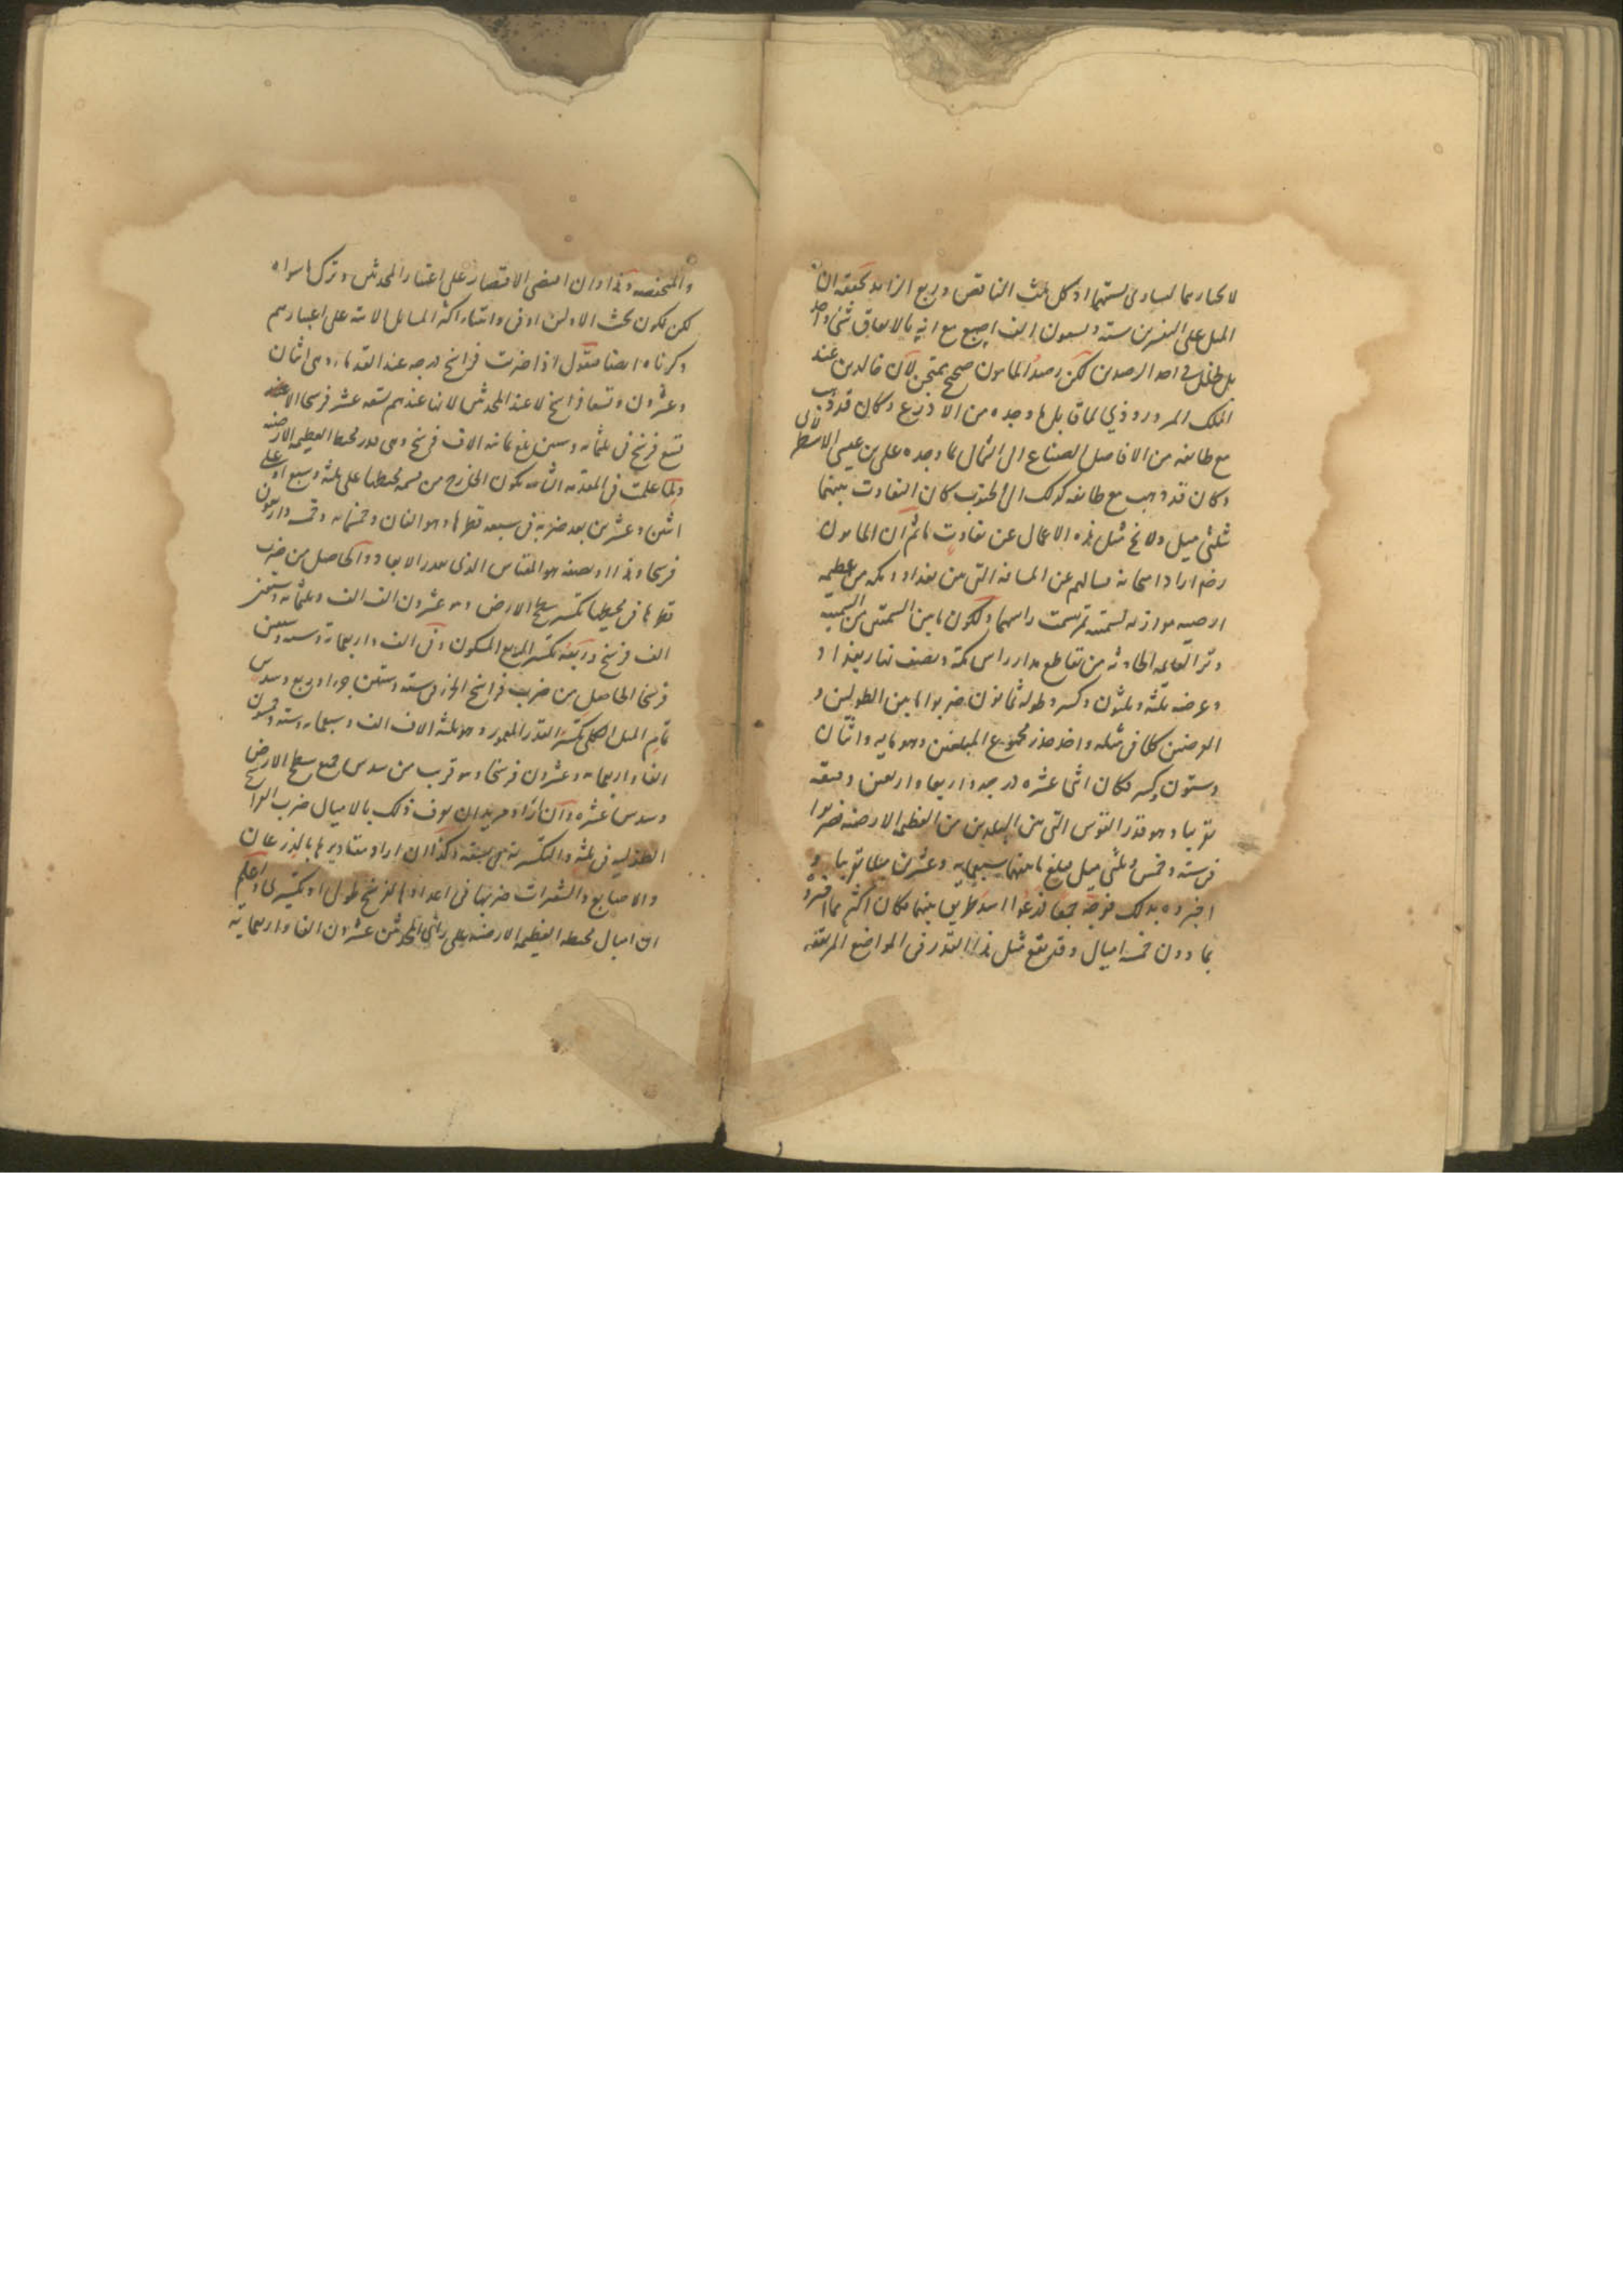 لاتحادهما لتساوي نسبتهما اذ كل ثلث الناقص وربع الزايد تحقيقه ان
الميل على التفسيرين ستة وتسعون الف اصبع مع انه بالاتفاق شئ واحد
بل خلل في احد الرصدين لكن رصد المامون صحيح ممتحن لان خالد بن عبد
الملك المروروذي لما قابل ما وجده من الاذرع وكان قد ذهب
مع طائفه من الافاضل الصناع الى الشمال بما وجده علي بن عيسى الاسطرلابى
وكان قد ذهب مع طائفه كذلك الى الجنوب كان التفاوت بينهما
ثلثى ميل ولا يخ مثل هذه الاعمال عن تفاوت ما ثم ان المامون
رضم اراد امتحانه فسالهم عن المسافه التى بين بغداد ومكه من عظيمه
ارضيه موازيه لسمتيه تمر بسمت راسهما ولكون ما بين السمتين من السمتيه
وتر القايمه الحادثه من تقاطع مدار راس مكه ونصف نهار بغداد
وعرضه ثلثه وثلثون وكسر وطوله ثمانون ضربوا ما بين الطولين و
العرضين كلا فى مثله واخذ جذر مجموع المبلغين وهو مايه واثنان
وستون وكسر فكان اثنا عشره درجه واربعا واربعين دقيقه
تقريبا وهو قدر القوس التى بين البلدين من العظيمه الارضيه ضربوا
فى سته وخمسين وثلثى ميل فبلغ ما بينهما سبعمايه وعشرين ميلا تقريبا و
اخبروه بذلك فوجه جمعا فذرعوا اسد طريق بينهما فكان اكثر مما اخبروه
بما دون خمسه اميال وقد يقع مثل هذا القدر فى المواضع المرتفعه
والمنخفضه وهذا وان اقتضى الاقتصار على اعتبار المحدثين وترك ما سواه
لكن لكون بحث الاولين اوفى وابتناء اكثر المسائل الاتيه على اعتبارهم
ذكرناه ايضا فنقول اذا ضربت فراسخ درجه عند القدماء وهى اثنان
وعشرون وتسعا فراسخ لا عند المحدثين لانها عندهم تسعه عشر فرسخا الا
تسع فرسخ فى ثلثمايه وستين بلغ ثمانيه الاف فرسخ وهى دور محيط العظيمه الارضيه
ولما علمت فى المقدمه الثانيه يكون الخارج من قسمه محيطها على ثلثه وسبع او على
اثنين وعشرين بعد ضربه فى سبعه قطرها وهو الفان وخمسمايه وخمسه واربعون
فرسخا وهذا او نصفه هو المقياس الذى يقدر الابعاد والحاصل من ضرب
قطرها فى محيطها تكسير سطح الارض وهو عشرون الف الف وثلثمايه وستين
الف فرسخ وربعه تكسير الربع المسكون وفى الف واربعمايه وسته وستين
فرسخا الحاصل من ضرب فراسخ الجزء فى سته وستين جزءا وربع وسدس
تمام الميل الكلى تكسير القدر المعمور وهو ثلثه الاف الف وسبعمايه وسته وخمسون
الفا واربعمايه وعشرون فرسخا وهو قريب من سدس جميع سطح الارض
وسدس عشره وان اراد مريد ان يعرف ذلك بالاميال ضرب الفراسخ
الطوليه فى ثلثه والتكسيريه فى تسعه وكذا ان اراد مقاديرها بالذرعان
والاصابع والشعيرات ضربها فى اعدادها للفرسخ طولا او تكسيرا واعلم
ان اميال محيط العظيمه الارضيه على راى المحدثين عشرون الفا واربعمايه